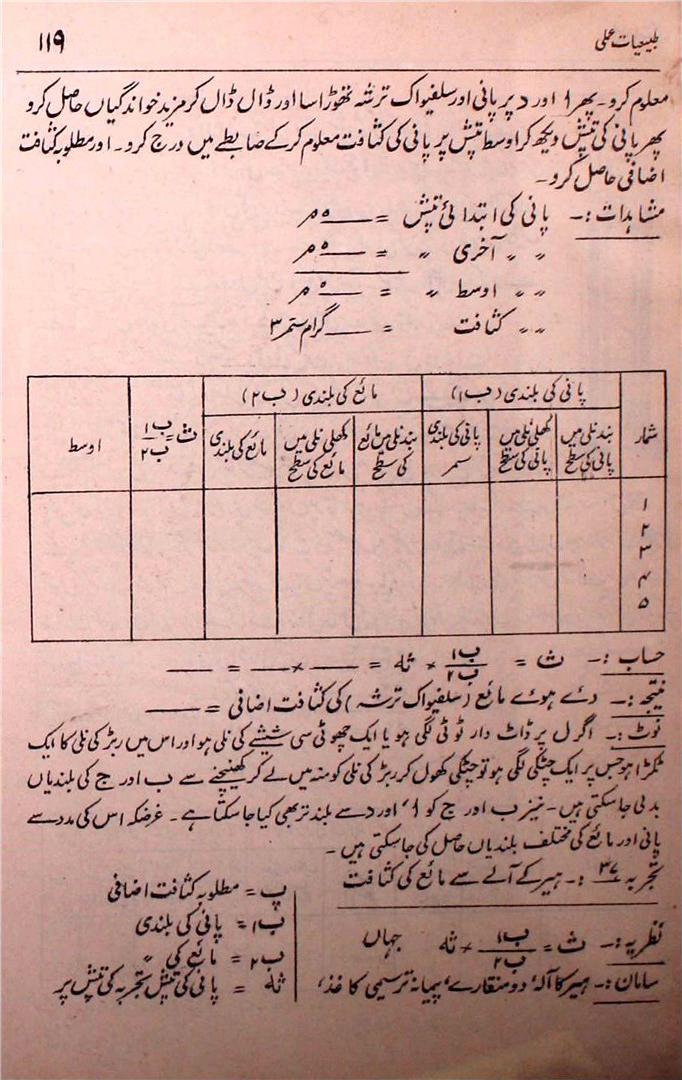 طبیعیات عملی ۱۱۹
معلوم کرو۔ پھر ا اور د پر پانی اور سلفیواک ترشہ تھوڑا سا اور ڈال ڈال کر مزید خواندگیاں حاصل کرو
پھر پانی کی تپش دیکھ کر اوسط تپش پر پانی کی کثافت معلوم کر کے ضابطے میں درج کرو۔ اور مطلوبہ کثافت
اضافی حاصل کرو۔
مشاہدات :۔ پانی کی ابتدائی تپش = ——°م
〃 〃 آخری 〃 = ——°م
〃 〃 اوسط 〃 = ——°م
〃 〃 کثافت = —— گرام سنتمر ۳
شمار
پانی کی بلندی (ب۱)
مائع کی بلندی (ب۲)
ث = ب۱/ب۲
اوسط
بند نلی میں پانی کی سطح
کھلی نلی میں پانی کی سطح
پانی کی بلندی سمر
بند نلی میں مائع کی سطح
کھلی نلی میں مائع کی سطح
مائع کی بلندی
۱
۲
۳
۴
۵
حساب :۔ ث = ب۱/ب۲ × ثہ = —— × —— = ——
نتیجہ :۔ دئے ہوئے مائع (سلفیواک ترشہ) کی کثافت اضافی = ——
نوٹ :۔ اگر ل پر ڈاٹ دار ٹوٹی لگی ہو یا ایک چھوٹی سی شیشے کی نلی ہو اور اس میں ربڑ کی نلی کا ایک
ٹکڑا ہو جس پر ایک چٹکی لگی ہو تو چٹکی کھول کر ربڑ کی نلی کو منہ میں لے کر کھینچنے سے ب اور ج کی بلندیاں
بدلی جا سکتی ہیں۔ نیز ب اور ج کو ا، اور د سے بلند تر بھی کیا جا سکتا ہے۔ غرضکہ اس کی مدد سے
پانی اور مائع کی مختلف بلندیاں حاصل کی جا سکتی ہیں۔
تجربہ ۳۷ :۔ ہیر کے آلے سے مائع کی کثافت
نظریہ :۔ ث = ب۱/ب۲ × ثہ جہاں
سامان :۔ ہیر کا آلہ، دو منقارے، پیمانہ ترسیمی کاغذ،
پ = مطلوبہ کثافت اضافی
ب۱ = پانی کی بلندی
ب۲ = مائع کی 〃
ثہ = پانی کی تپش تجربہ کی تپش پر